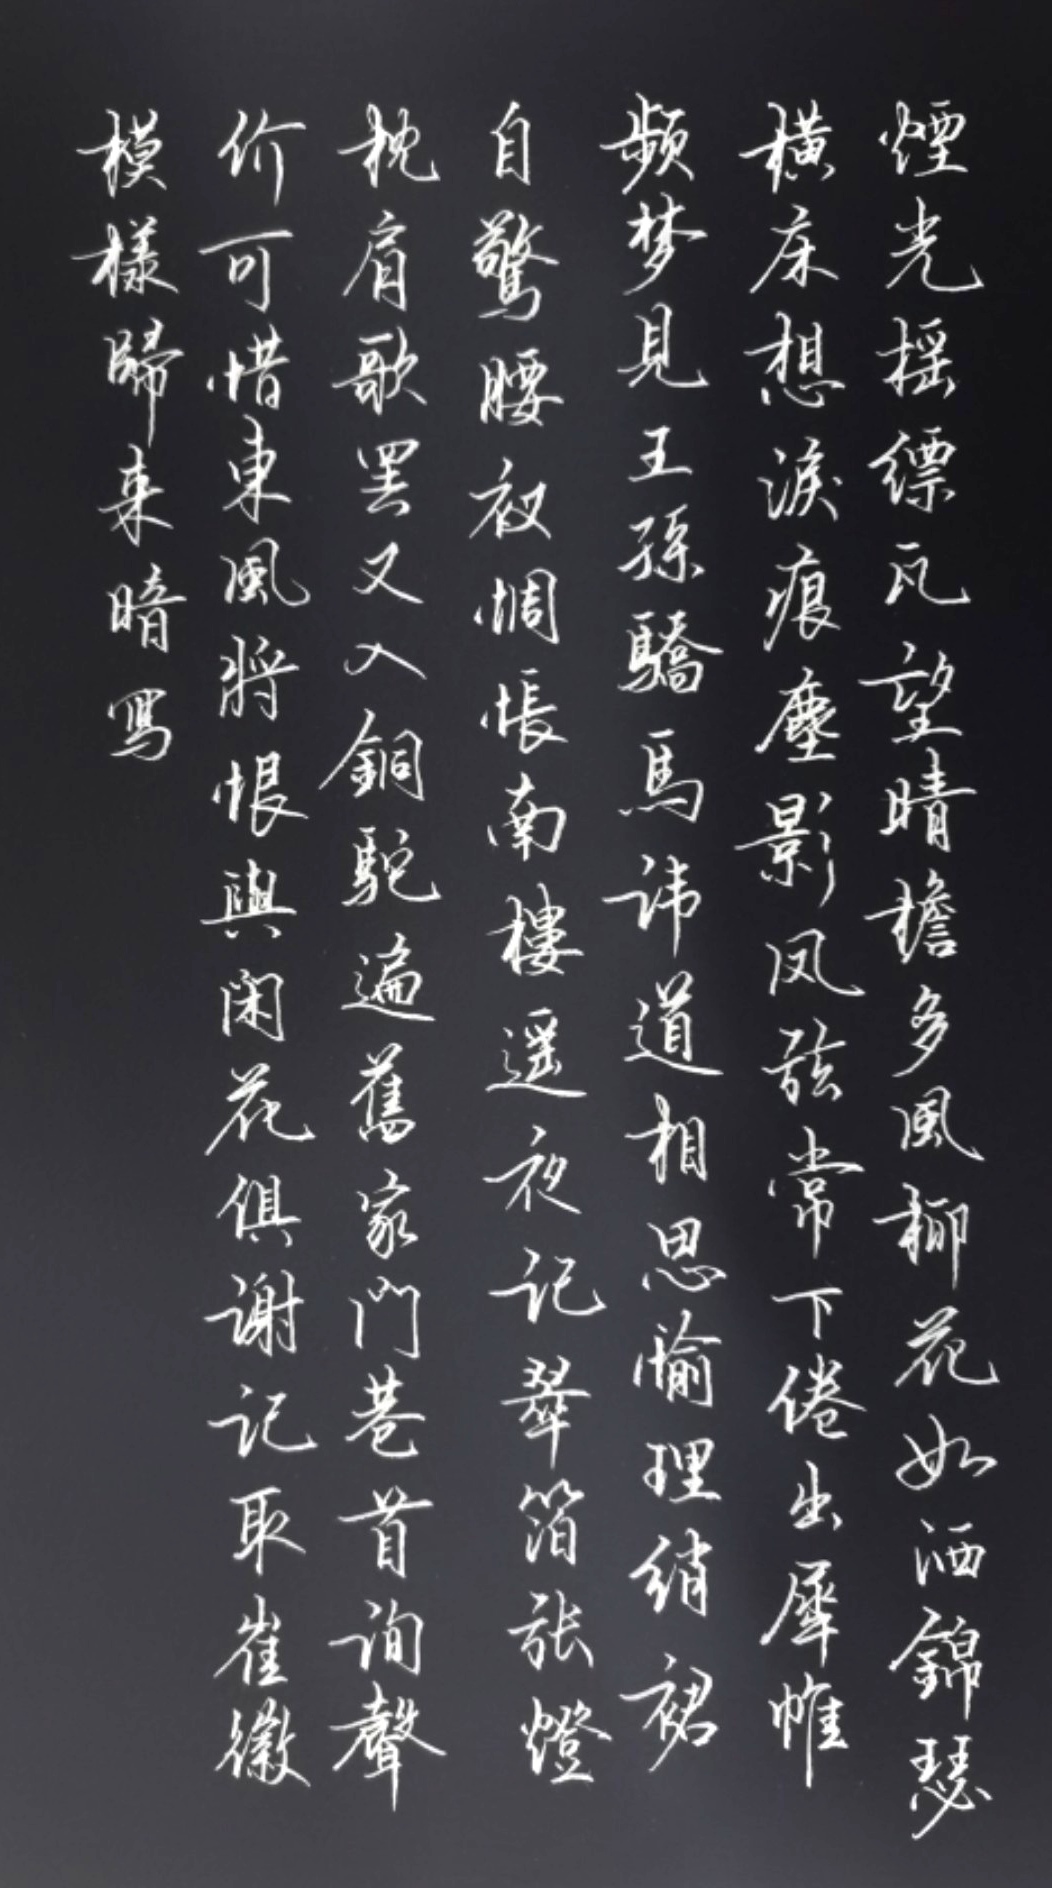 煙光摇縹瓦望晴檐多風栁花如洒錦瑟
横床想淚痕塵影凤弦常下倦出犀帷
頻梦見王孫驕馬讳道相思愉理绡裙
自驚腰衩惆悵南樓遥夜记翠箔張燈
枕肩歌罢又入銅駝遍舊家門巷首询聲
价可惜東風将恨與闲花俱谢记取崔徽
模樣歸来暗寫